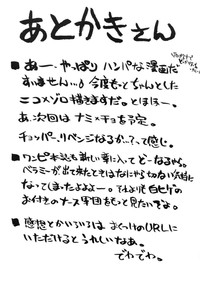 あとかきえん
■あー、やっぱり ハンパな漫画だ
すいません…。今度もっとちゃんとした
ニコ×ゾロ描きますだ。とほほー。
あ、次回は ナミ×チョを予定。
チョッパー、リベンジなるか?って感じ。
■ワンピ本誌も新しい章に入って どーなるやら。
ベラミーが出て来たときはなにやら切ない気持に
なってしまったよよよー。てゆーより白ヒゲの
お付きのナース軍団をもっと見たいでよ。
■感想とかいろいろは おくづけのURLに
いただけると うれしいなあ。
でわでわ。